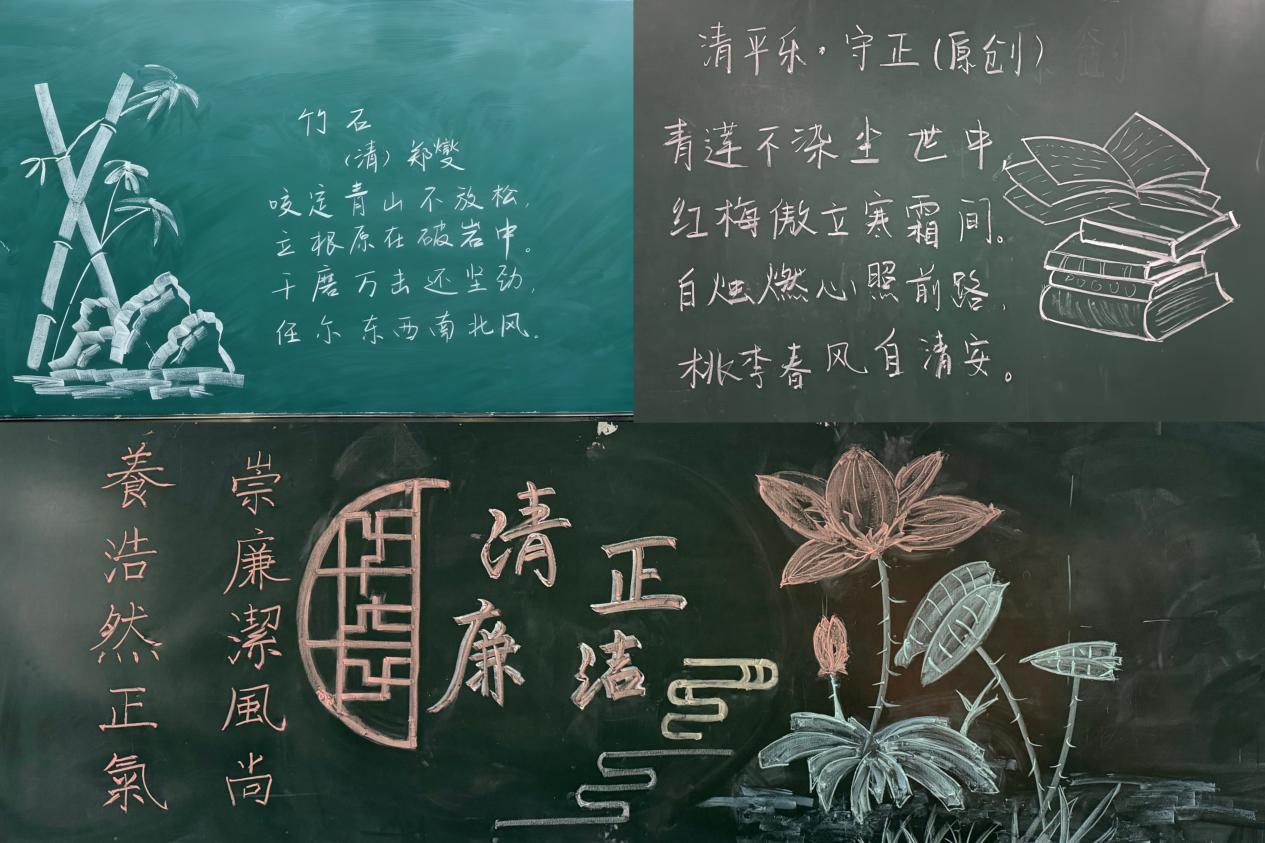 竹石
（清）郑燮
咬定青山不放松，
立根原在破岩中。
千磨万击还坚劲，
任尔东西南北风。
清平乐·守正（原创）
青莲不染尘世中
红梅傲立寒霜间。
自烛燃心照前路，
桃李春风自清安。
崇廉潔風尚
養浩然正氣
清正
廉洁